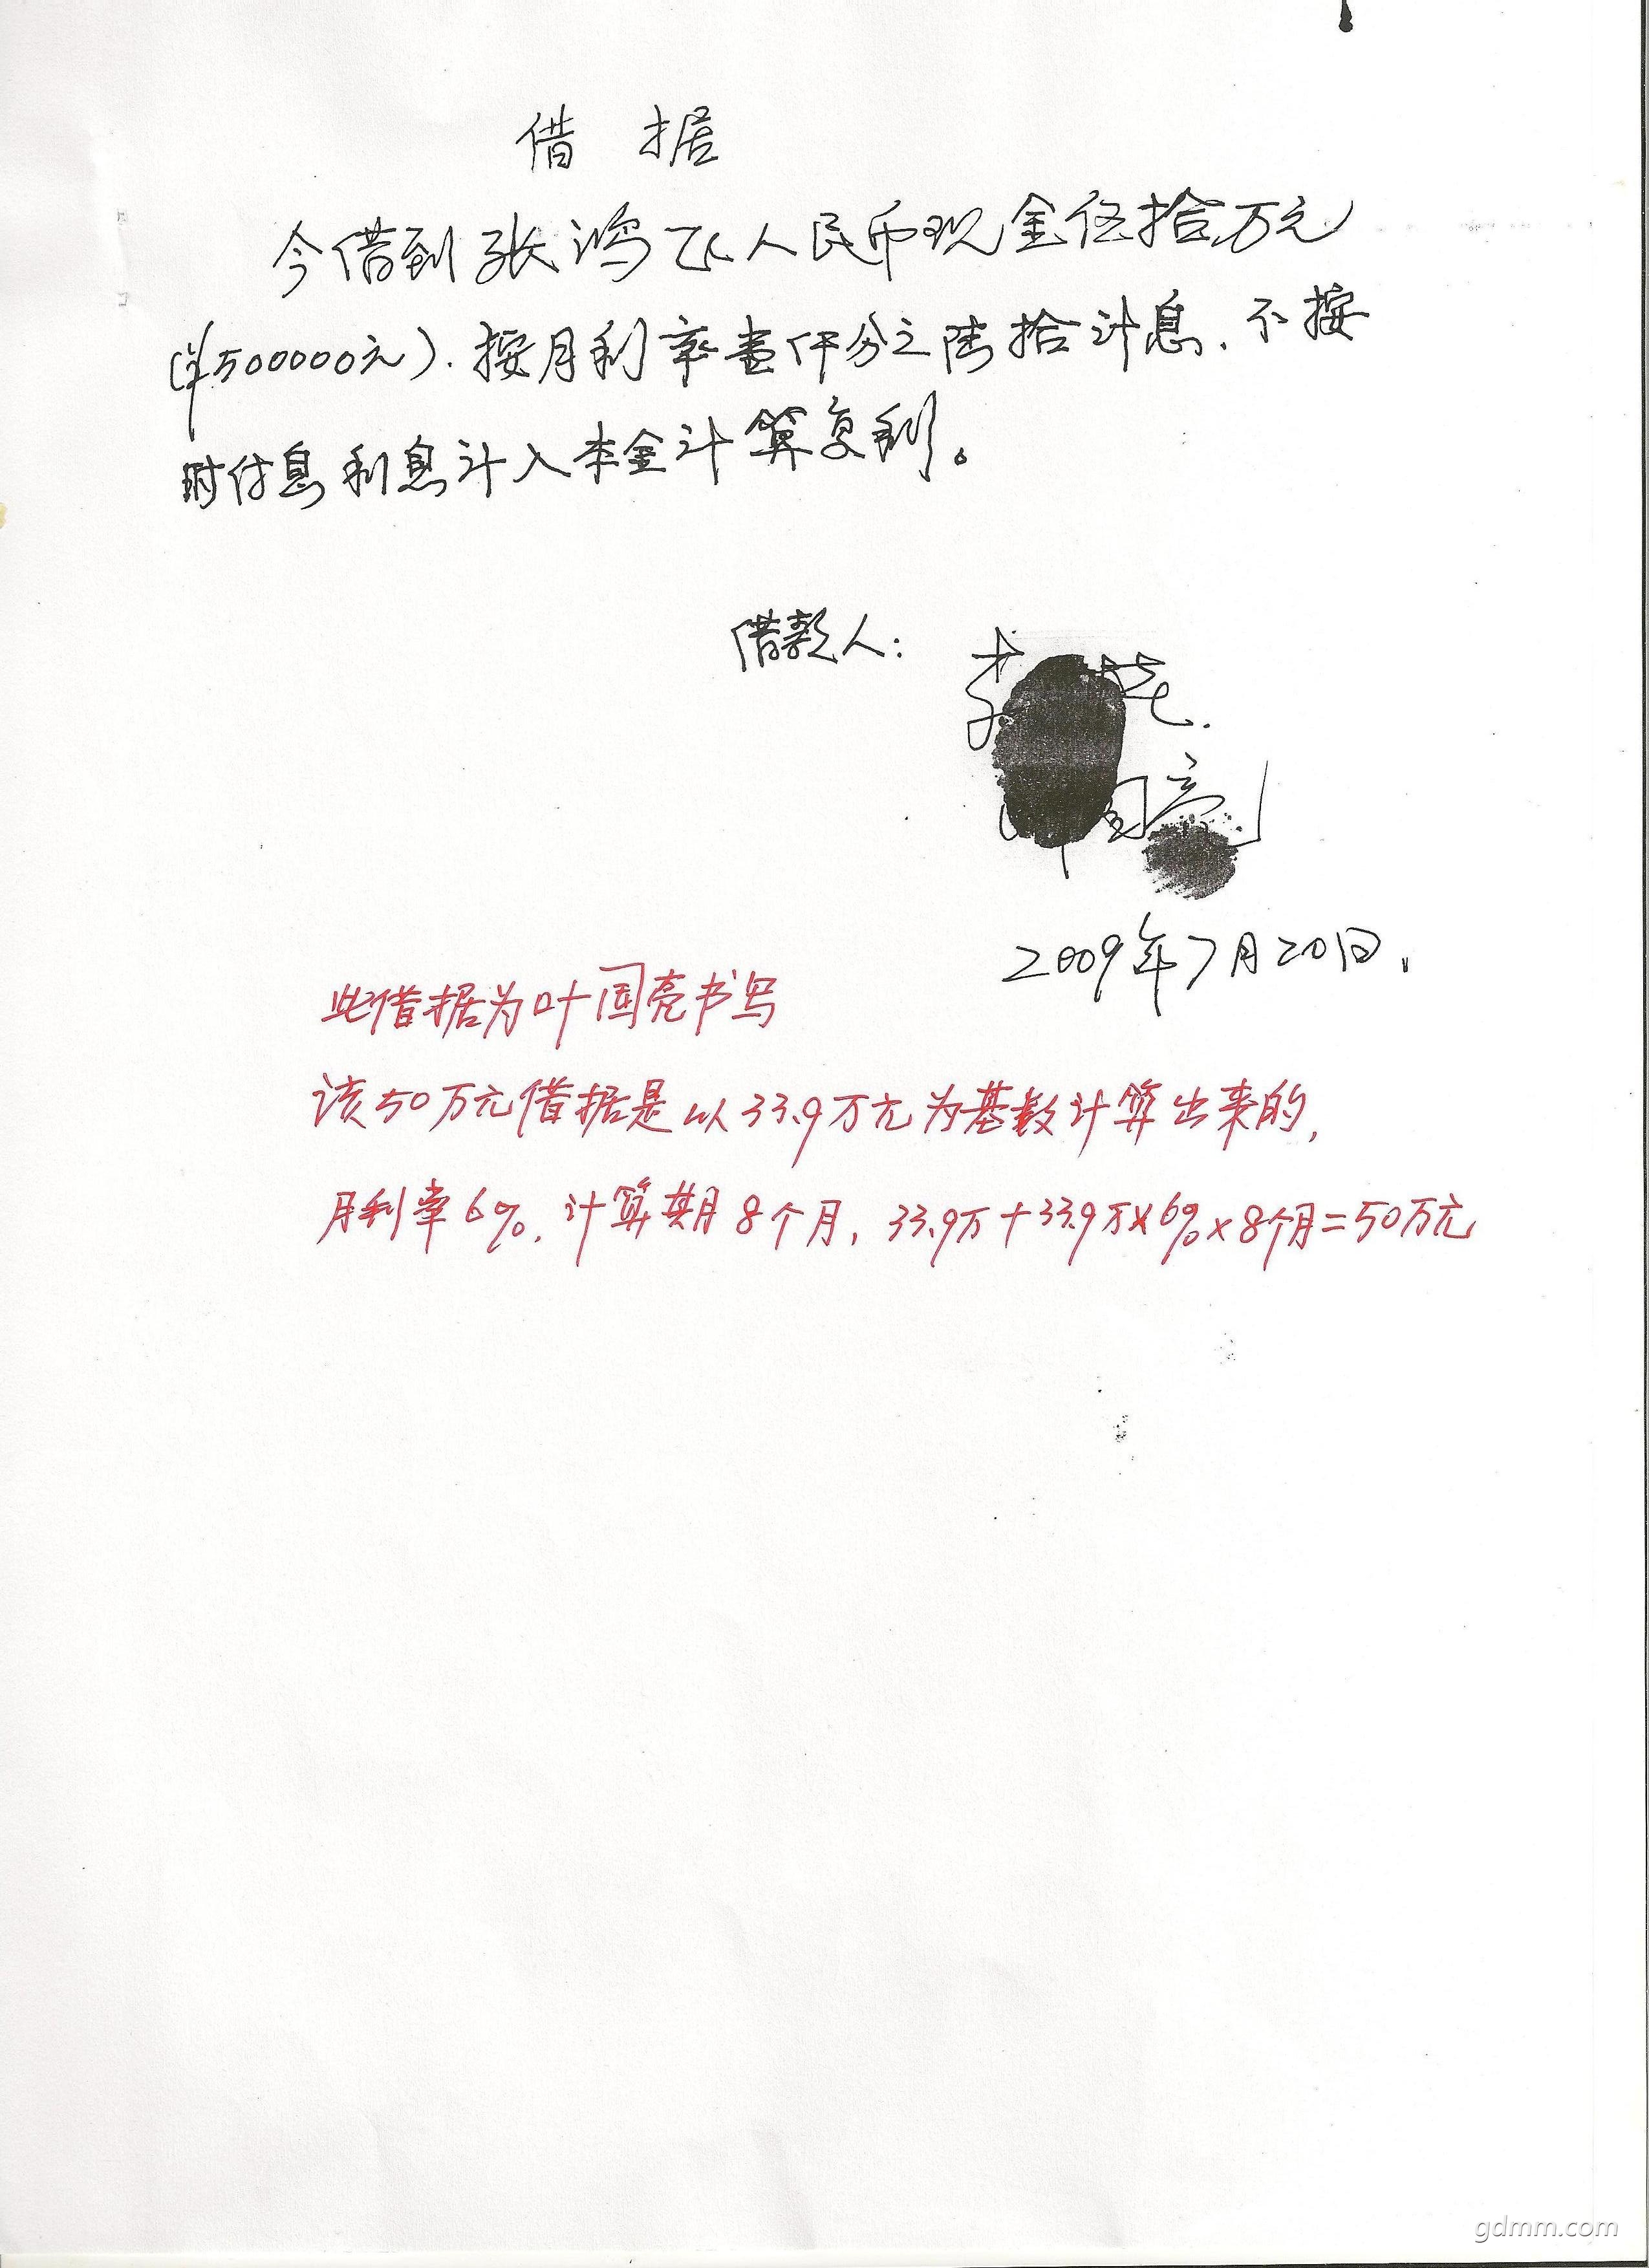 借 据
今借到张鸿飞人民币现金伍拾万元
(¥500000元).按月利率壹仟分之陆拾计息.不按
时付息利息计入本金计算复利。
借款人:
李
国亮
2009年7月20日.
此借据为叶国亮书写
该50万元借据是以33.9万元为基数计算出来的,
月利率6%.计算期8个月,33.9万+33.9万×6%×8个月=50万元
gdmm.com